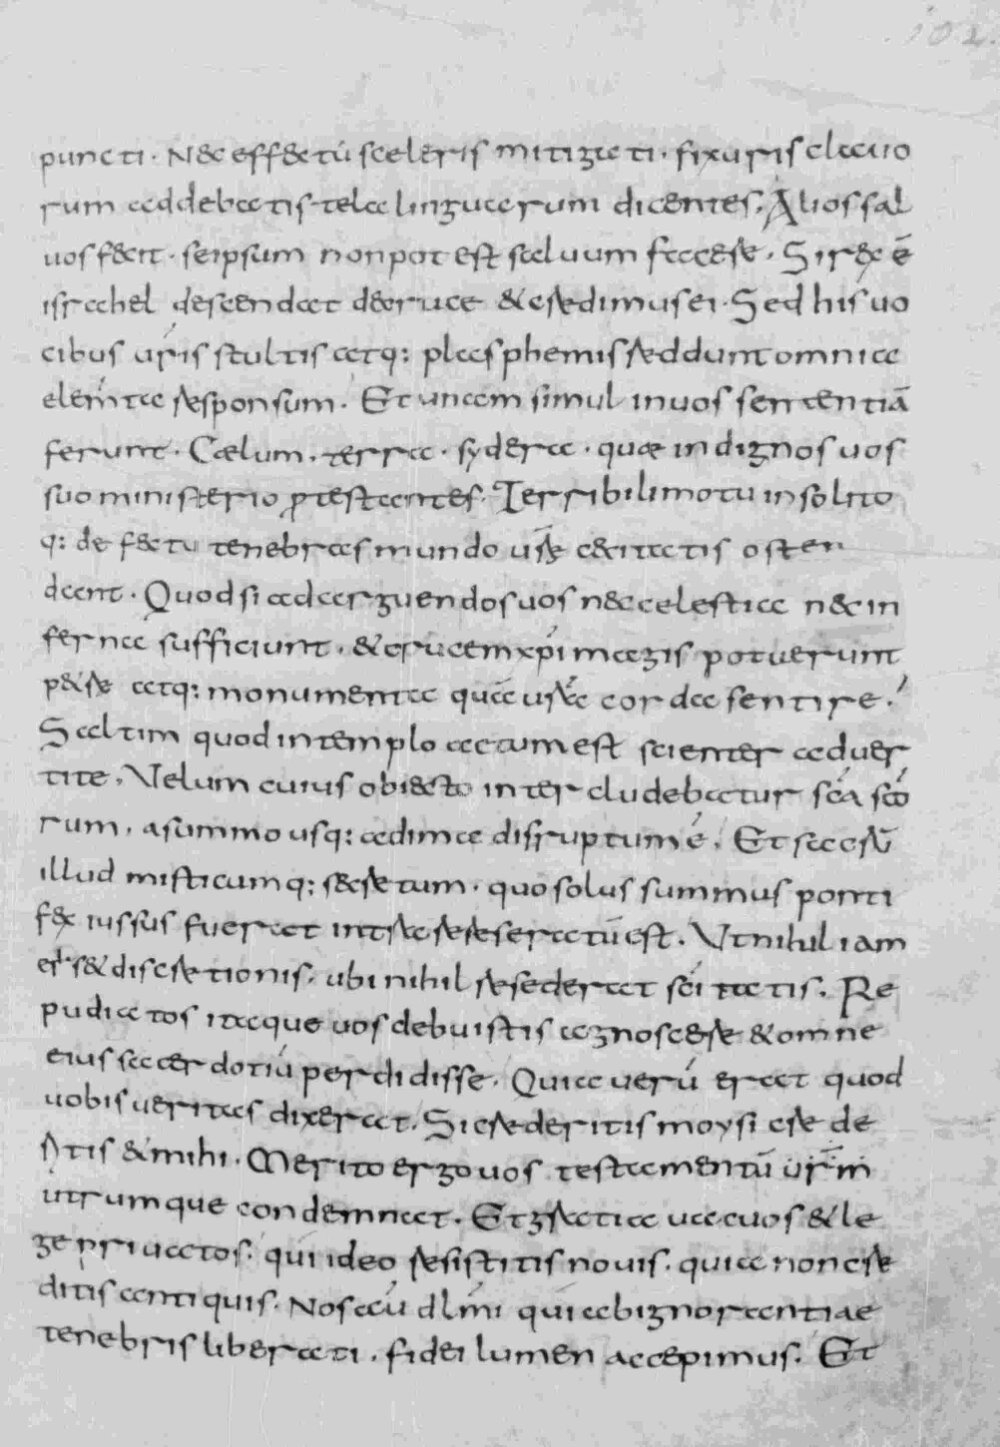 102.
puncti. Nec effectū sceleris mitigati. fixuris clauo
rum addebatis tela linguarum dicentes. Alios sal
uos fecit. seipsum non potest saluum facere. Si rex ē
israhel descendat de cruce & credimus ei. Sed his uo
cibus uris stultis atq: plasphemis reddunt omnia
elemta responsum. Et unam simul in uos sententiā
ferunt. Cælum. terra. sydera. quæ indignos uos
suo ministerio protestantes. Terribili motu insolito
q: defectu tenebras mundo urē cecitatis osten
dant. Quod si ad arguendos uos nec celestia nec in
ferna sufficiunt. & crucem xpi magis potuerunt
petre atq: monumenta quā ura corda sentire.
Saltim quod in templo actum est scienter aduer
tite. Velum cuius obiecto intercludebatur scā scō
rum. a summo usq: ad ima disruptum ē. Et sacrū
illud misticumq: secretum. quo solus summus ponti
fex iussus fuerat intrare reseratū est. Ut nihil iam
et discretionis. ubi nihil resederat sci tatis. Re
pudiatos itaque uos debuistis agnoscere & omne
eius sacerdotiū perdidisse. Quia uerū erat quod
uobis ueritas dixerat. Si crederitis moysi crede
r&tis & mihi. Merito ergo uos testamentū urm
utrumque condemnat. Et gratia uacuos & le
ge priuatos. qui ideo resistitis nouis. quia non cre
ditis antiquis. Nos aū dlmi qui ab ignorantiae
tenebris liberati. fidei lumen accepimus. Et